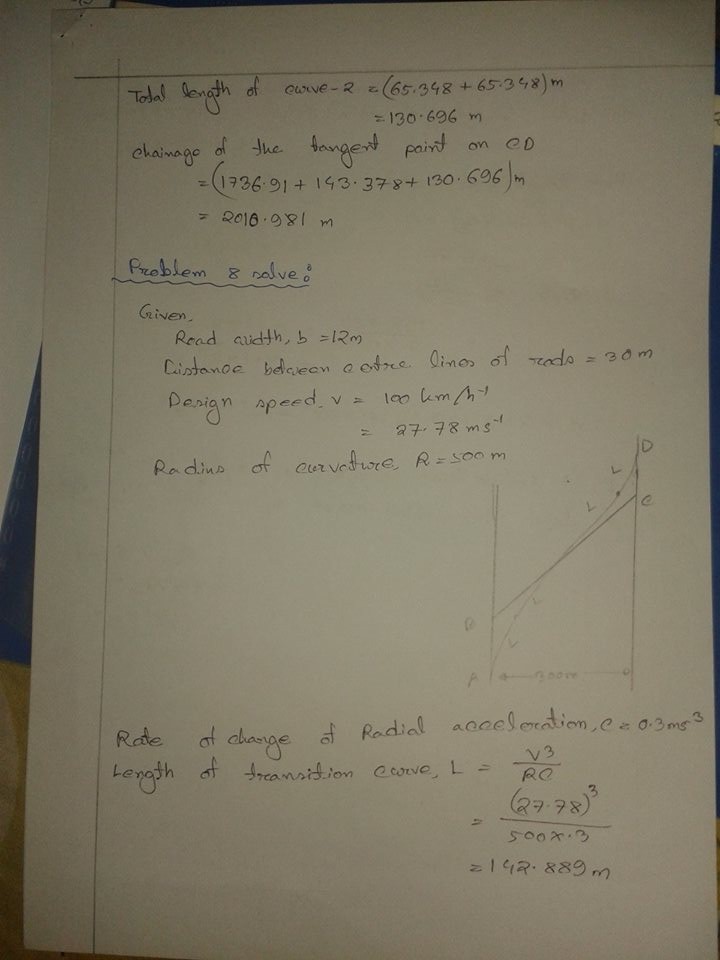 Total length of curve-2 = (65.348 + 65.348) m
= 130.696 m
chainage of the tangent point on CD
= (1736.91 + 143.378 + 130.696) m
= 2010.981 m
Problem 8 solve:
Given,
Road width, b = 12m
Distance between centre lines of rods = 30 m
Design speed, v = 100 km/h⁻¹
= 27.78 ms⁻¹
Radius of curvature, R = 500 m
D
L
C
L
B
L
L
A
Rate of change of Radial acceleration, C = 0.3 ms³
Length of transition curve, L = V3/RC
= (27.78)³/500x.3
= 142.889 m